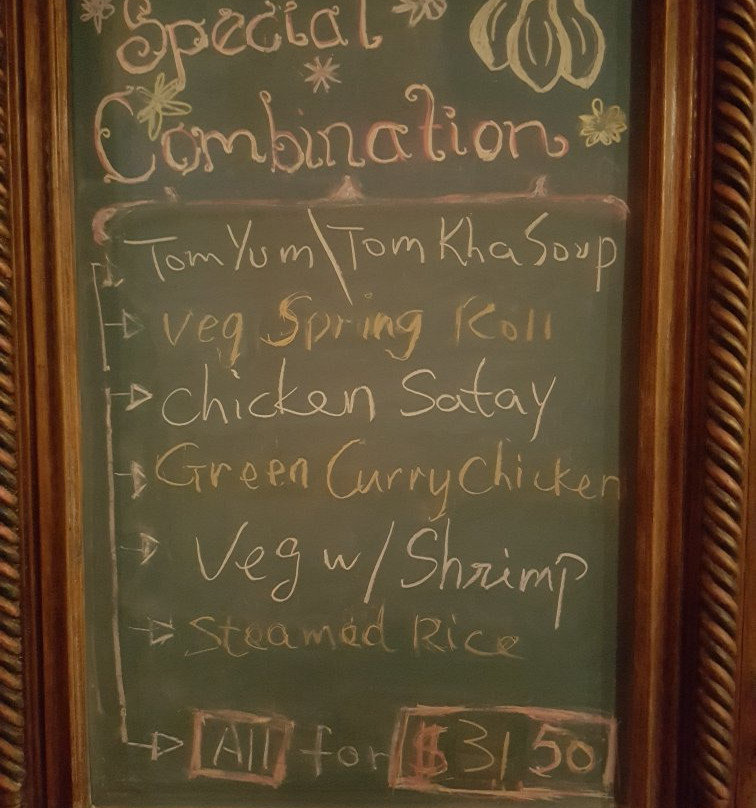 Special
Combination
Tom Yum\Tom Kha Soup
Veg Spring Roll
Chicken Satay
Green Curry Chicken
Veg w/ Shrimp
Steamed Rice
All for $31 50